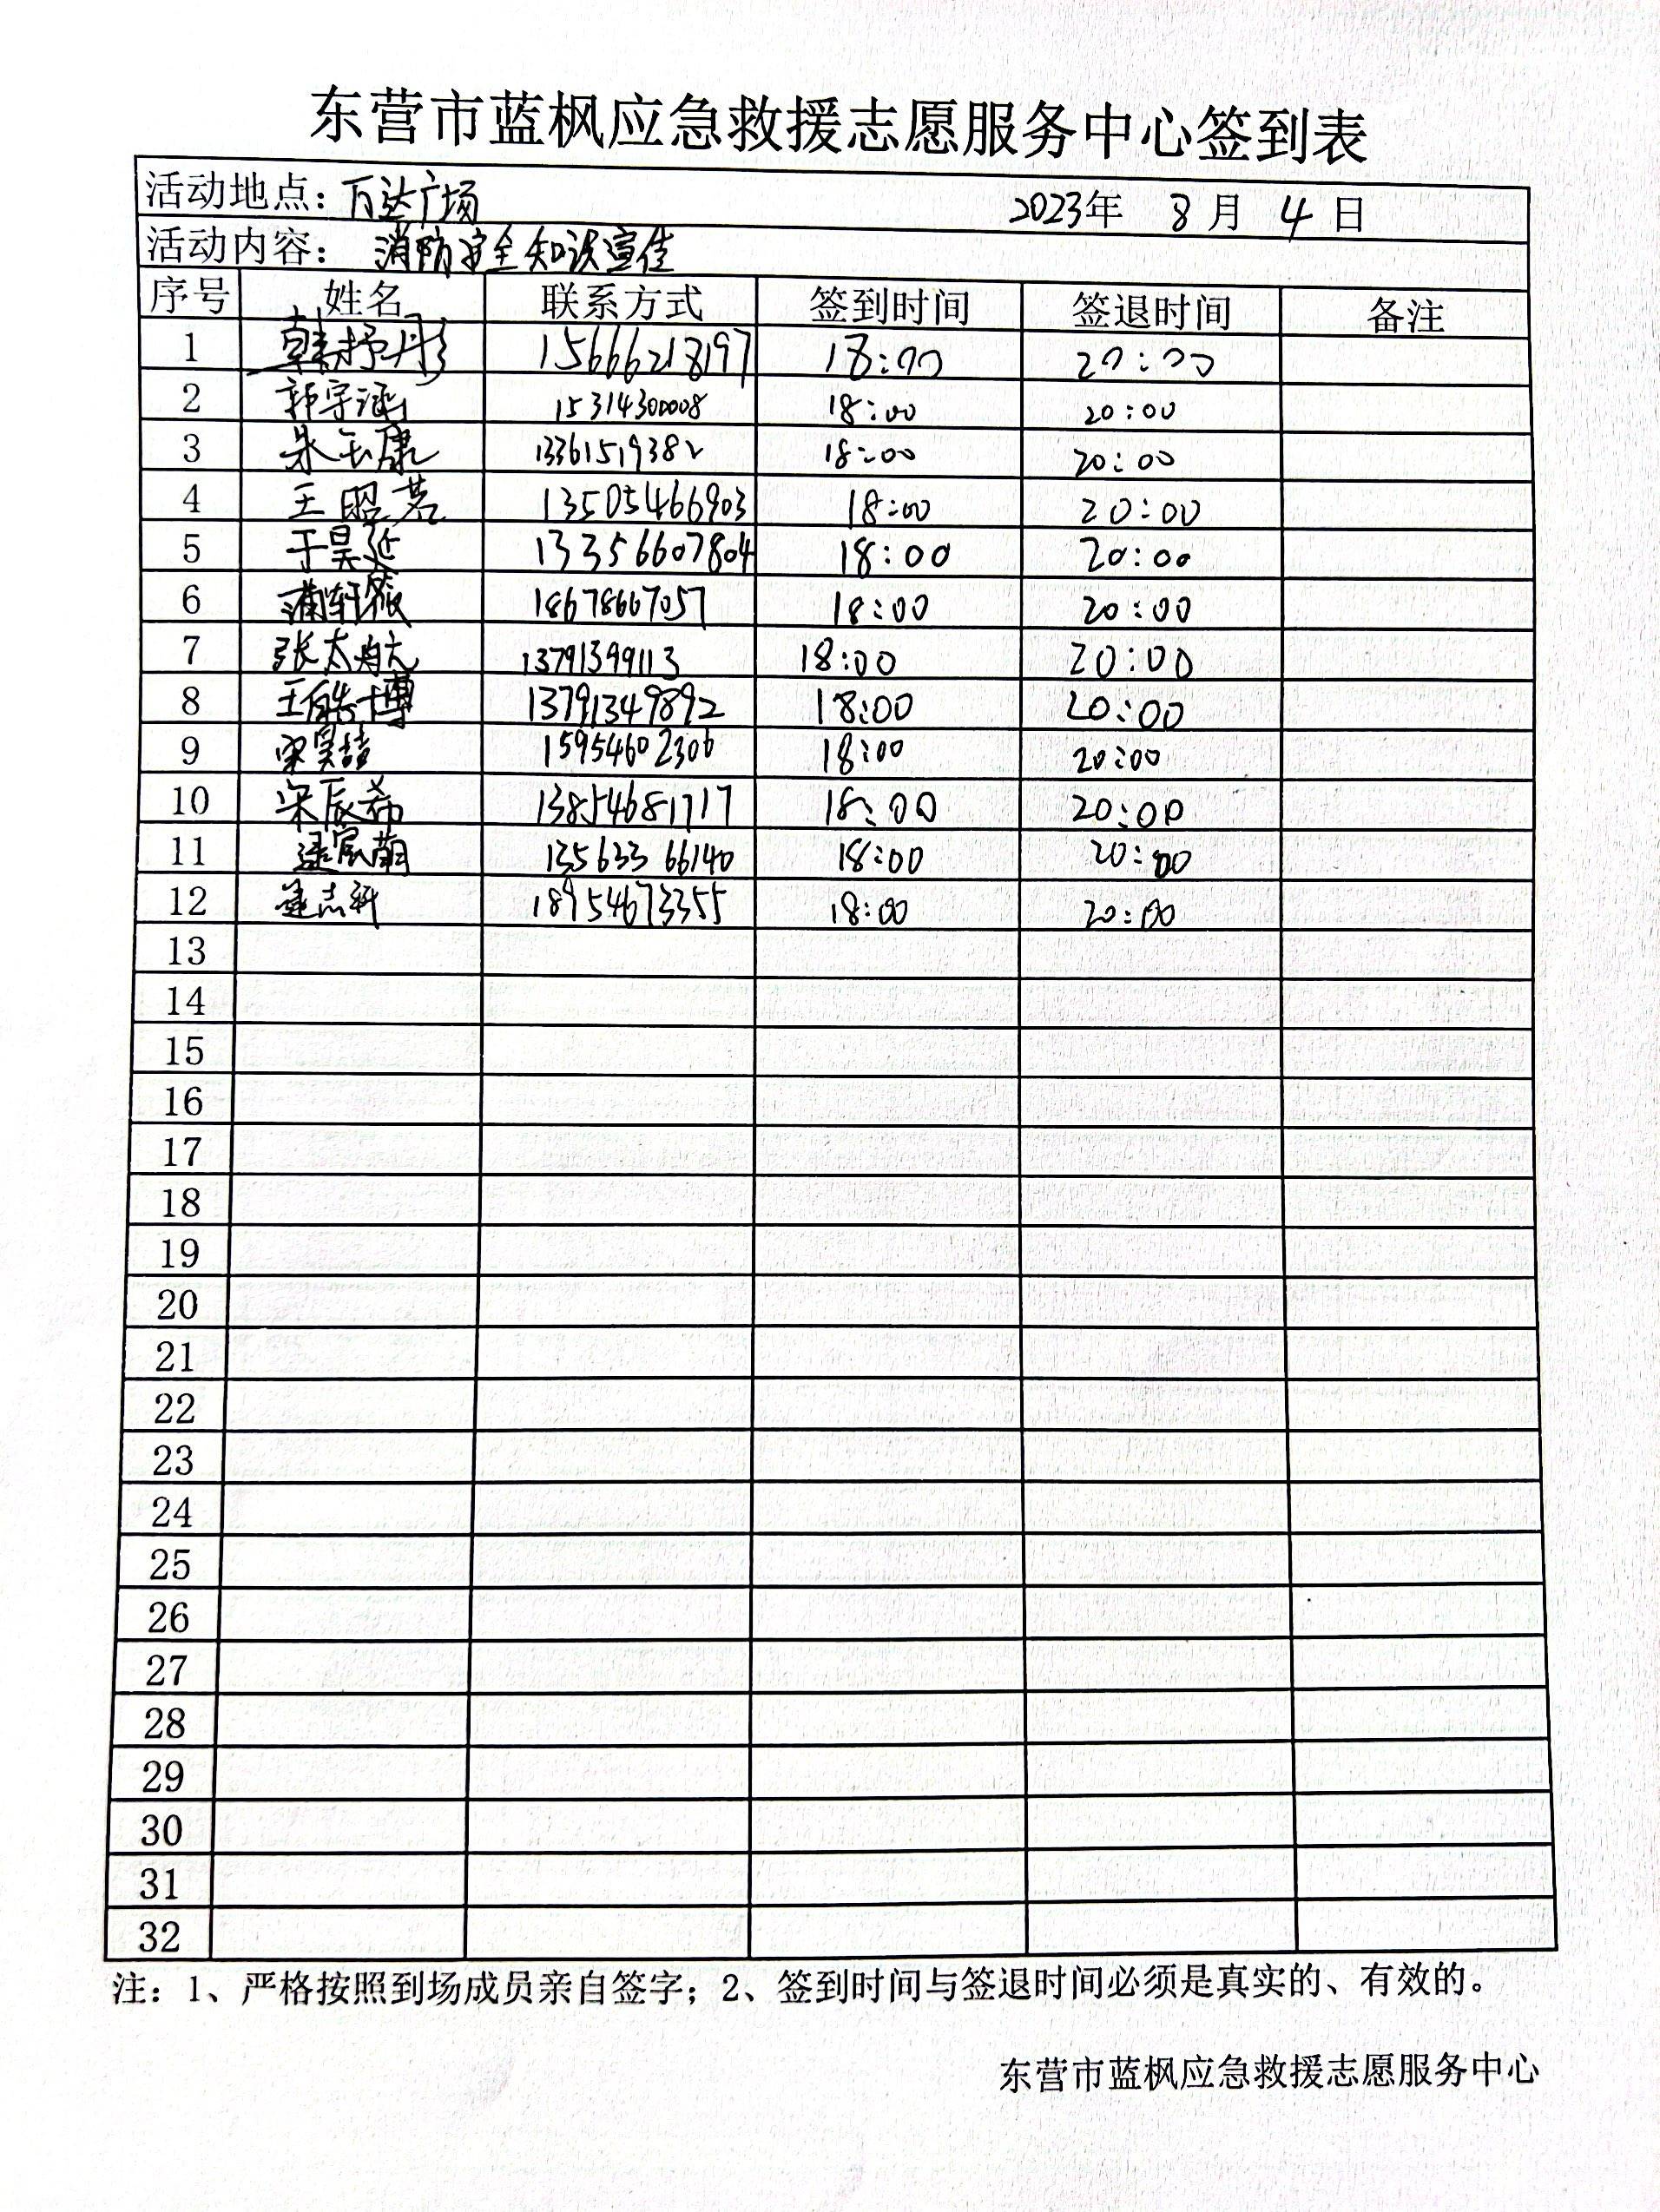 东营市蓝枫应急救援志愿服务中心签到表
活动地点：万达广场 2023年 8月 4日
活动内容：消防安全知识宣传
序号 姓名 联系方式 签到时间 签退时间 备注
1 韩抒彤 15666218197 18:00 20:00
2 郭宇涵 15314300008 18:00 20:00
3 朱玉康 13361519382 18:00 20:00
4 王昭茗 13505466903 18:00 20:00
5 于昊延 13356607804 18:00 20:00
6 蒲轩 18678667057 18:00 20:00
7 张太航 13791399113 18:00 20:00
8 王皓博 13791349892 18:00 20:00
9 宋昊喆 15954602306 18:00 20:00
10 宋辰希 13854681717 18:00 20:00
11 13563366140 18:00 20:00
12 志轩 18954673355 18:00 20:00
13
14
15
16
17
18
19
20
21
22
23
24
25
26
27
28
29
30
31
32
注：1、严格按照到场成员亲自签字；2、签到时间与签退时间必须是真实的、有效的。
东营市蓝枫应急救援志愿服务中心